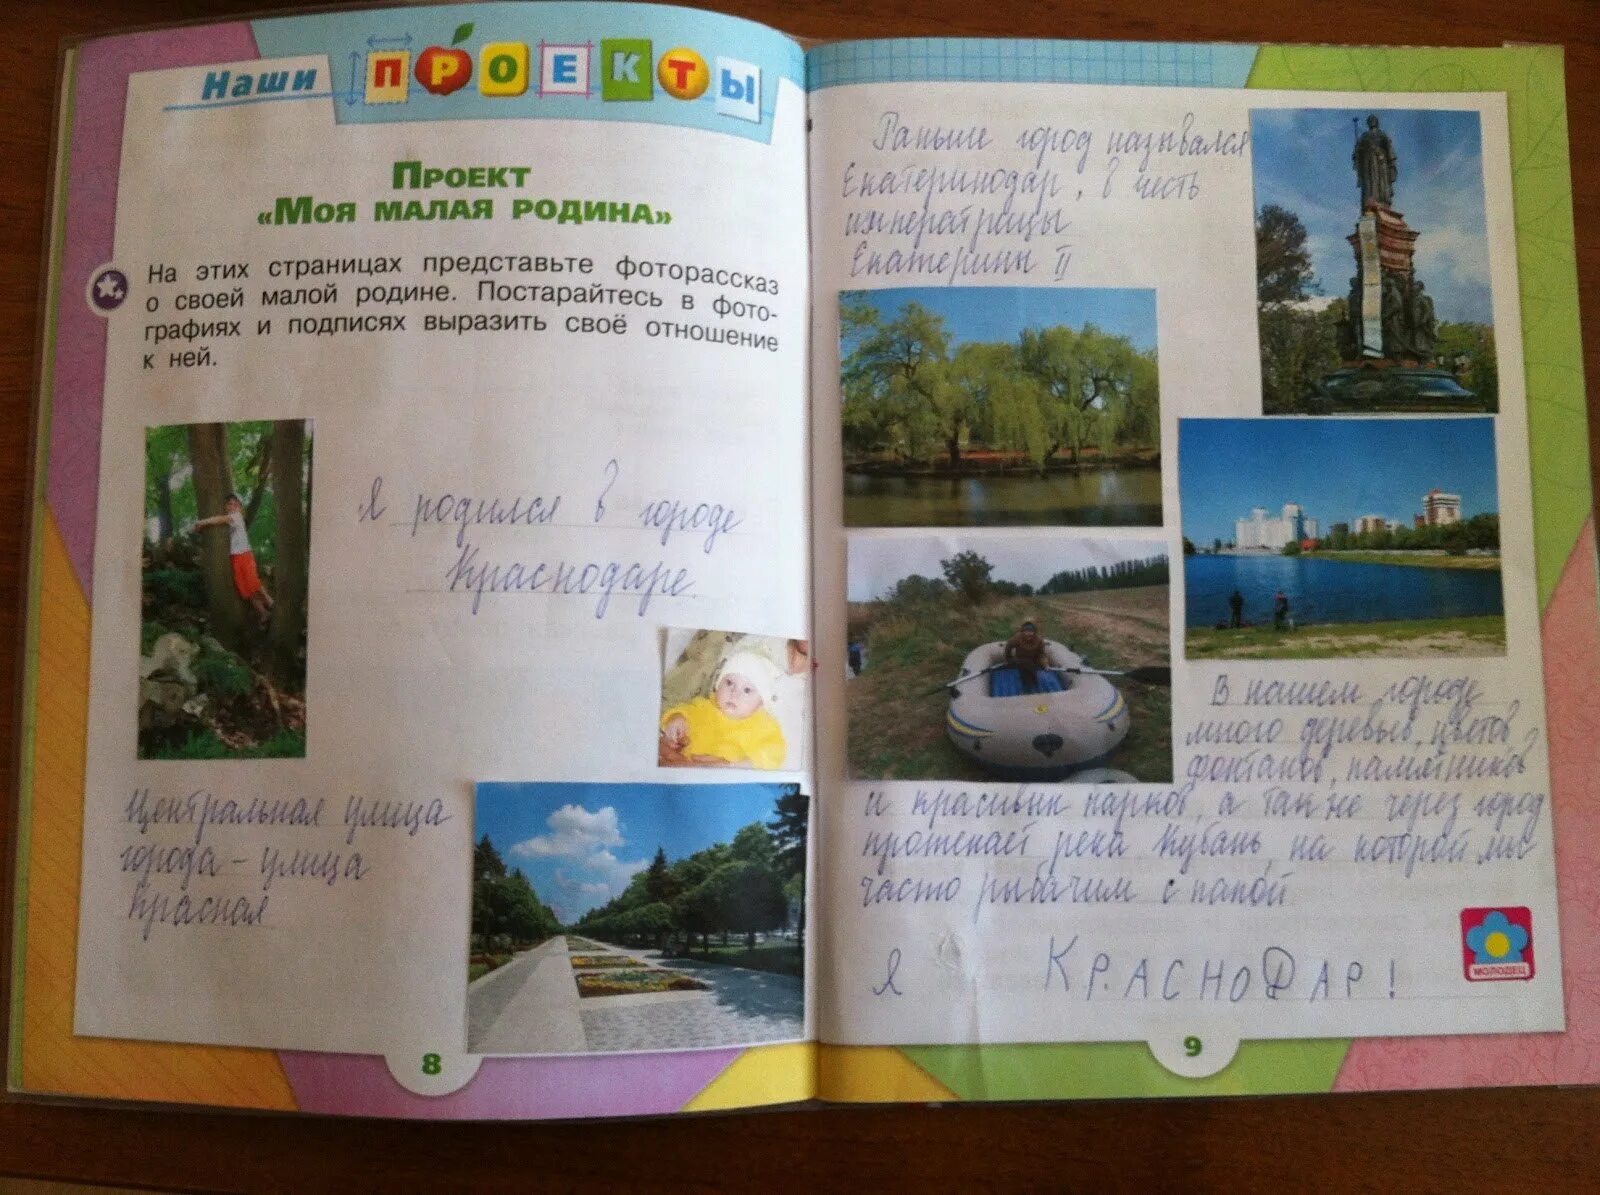 Наши ПРОЕКТЫ
ПРОЕКТ
«МОЯ МАЛАЯ РОДИНА»
На этих страницах представьте фоторассказ
о своей малой родине. Постарайтесь в фото-
графиях и подписях выразить своё отношение
к ней.
Я родился в городе
Краснодаре.
Центральная улица
города – улица
Красная
8
Раньше город назывался
Екатеринодар, в честь
императрицы
Екатерины II
В нашем городе
много деревьев, цветов
фонтанов, памятников
и красивых парков, а так же через город
протекает река Кубань, на которой мы
часто рыбачим с папой
Я КРАСНОДАР!
МОЛОДЕЦ
9